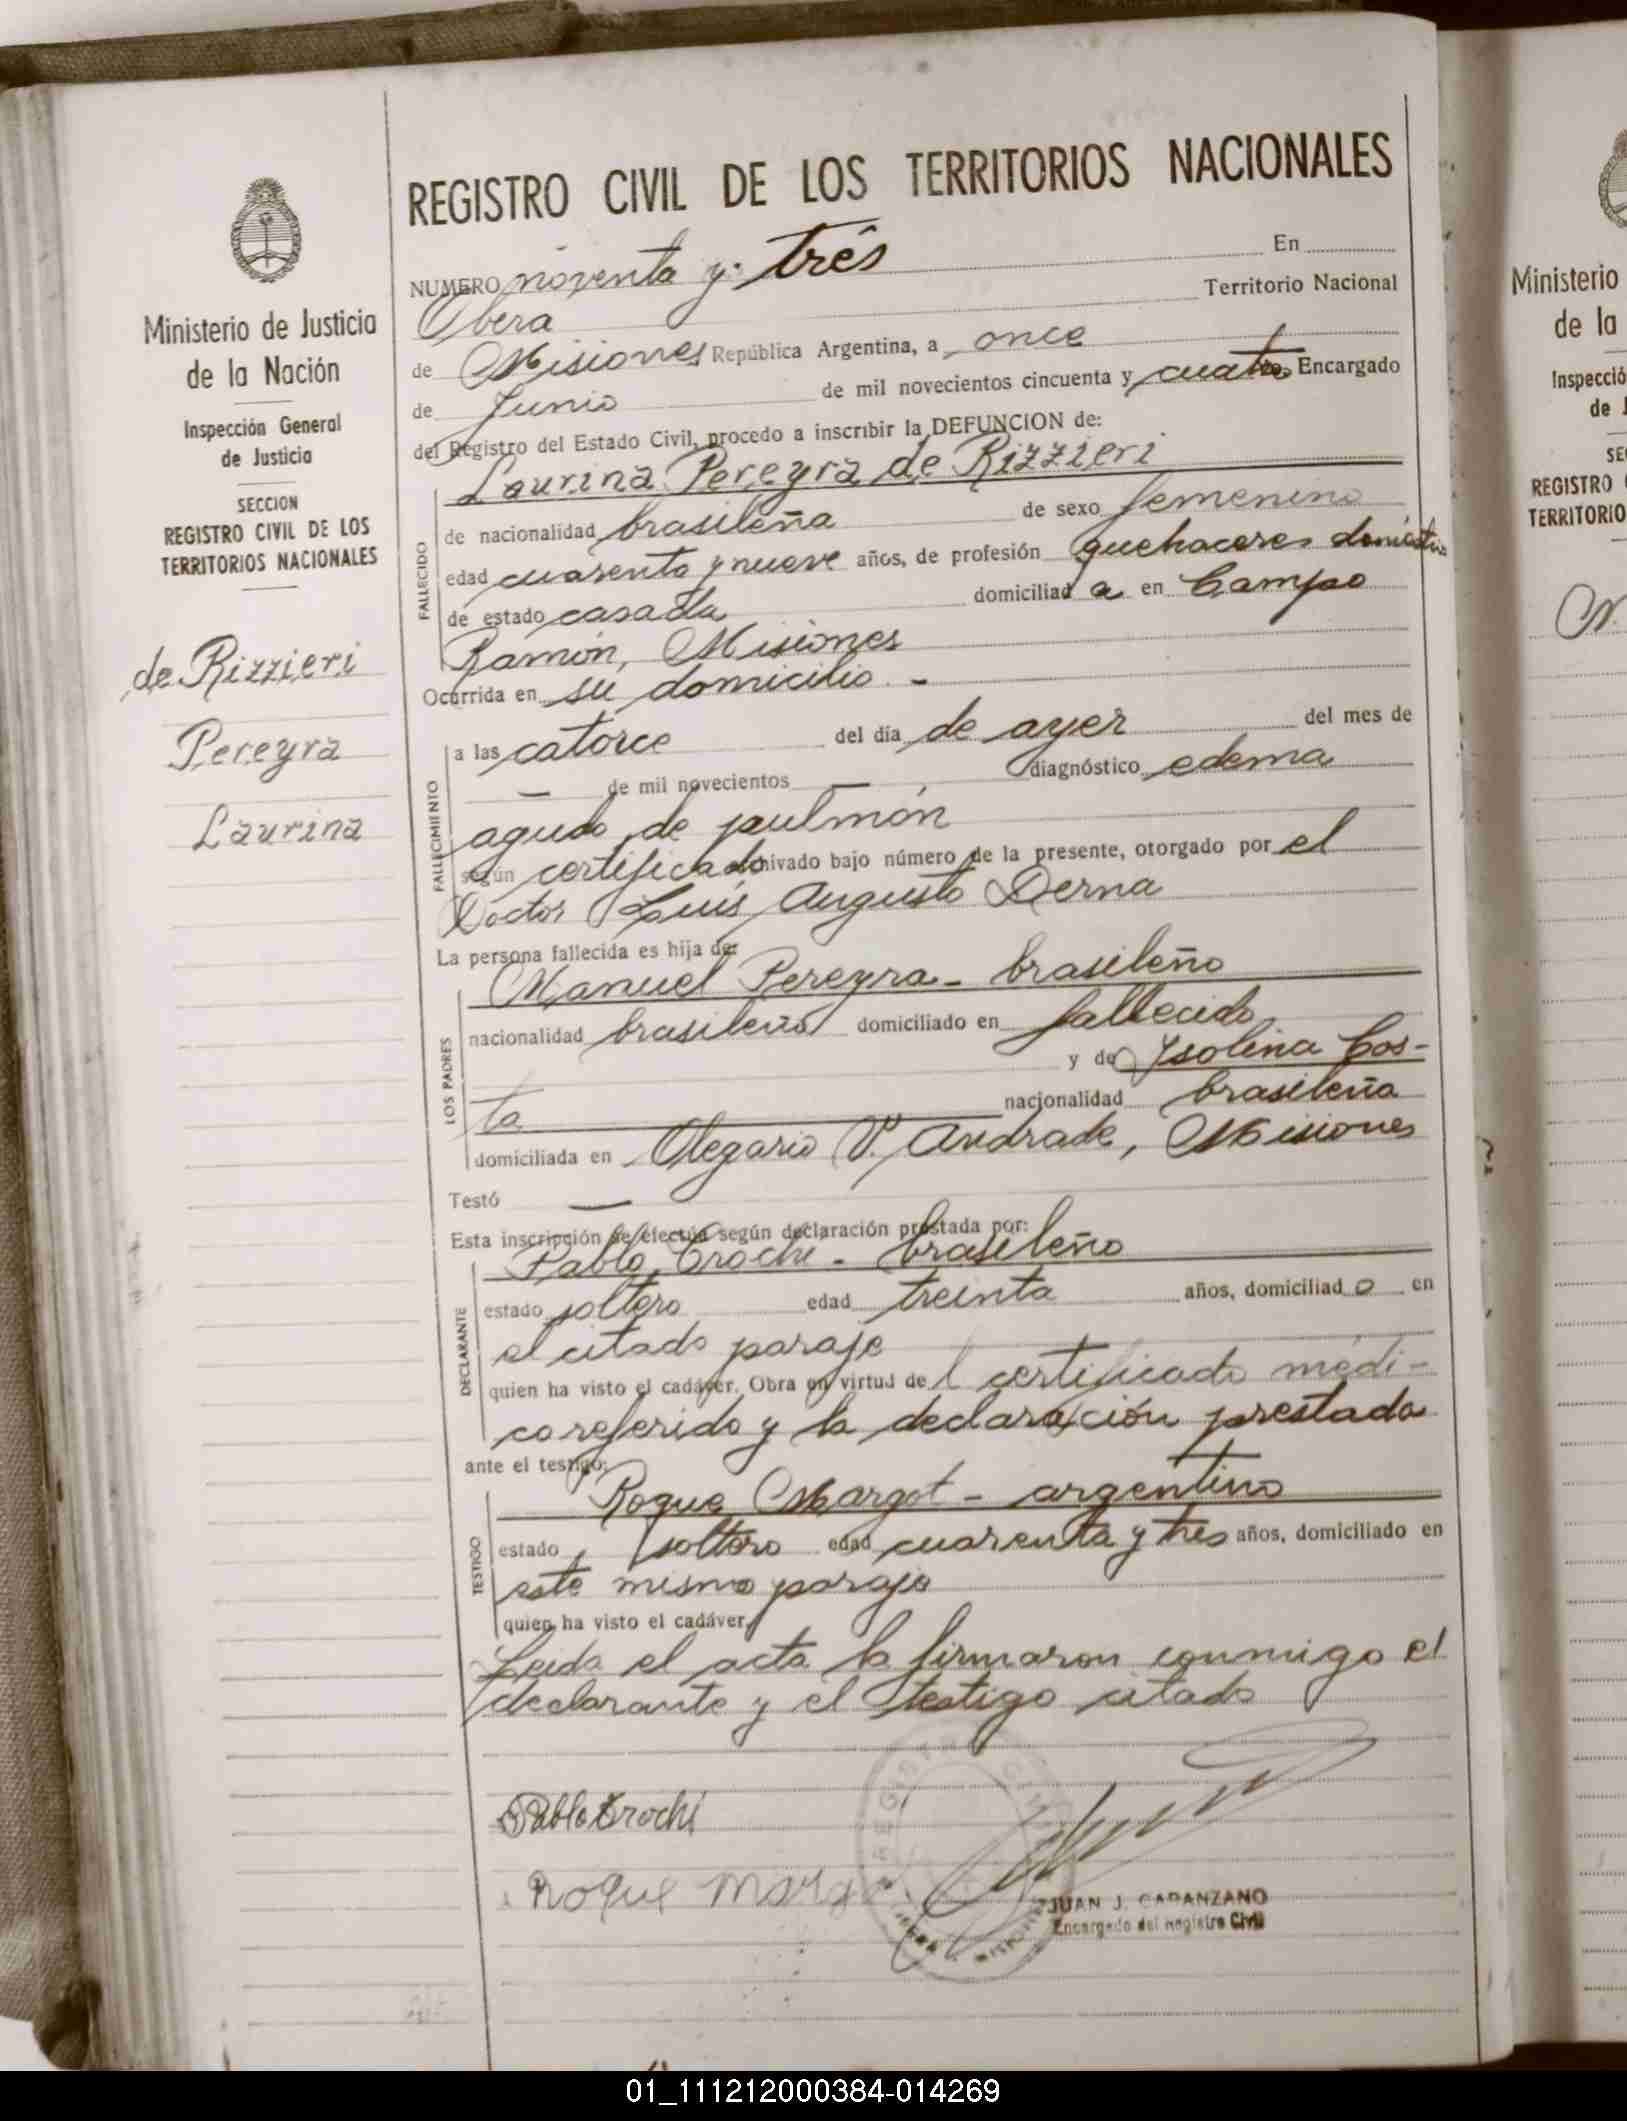 REGISTRO CIVIL DE LOS TERRITORIOS NACIONALES
Ministerio de Justicia
de la Nación
Inspección General
de Justicia
SECCION
REGISTRO CIVIL DE LOS
TERRITORIOS NACIONALES
de Rizzieri
Pereyra
Laurina
NUMERO noventa y tres En
Obera Territorio Nacional
de Misiones República Argentina, a once
de Junio de mil novecientos cincuenta y cuatro Encargado
del Registro del Estado Civil, procedo a inscribir la DEFUNCION de:
Laurina Pereyra de Rizzieri
FALLECIDO
de nacionalidad brasileña de sexo femenino
edad cuarenta y nueve años, de profesión quehaceres domésticos
de estado casada domiciliad a en Campo
Ramón, Misiones
Ocurrida en su domicilio. -
FALLECIMIENTO
a las catorce del día de ayer del mes de
— de mil novecientos — diagnóstico edema
agudo de pulmón
según certificado archivado bajo número de la presente, otorgado por el
Doctor Luis Augusto Derna
La persona fallecida es hija de:
LOS PADRES
Manuel Pereyra - brasileño
nacionalidad brasileño domiciliado en fallecido
y de Isolina Cos-
ta nacionalidad brasileña
domiciliada en Olegario V. Andrade, Misiones
Testó —
Esta inscripción se efectúa según declaración prestada por:
DECLARANTE
Pablo Crochi - brasileño
estado soltero edad treinta años, domiciliad o en
el citado paraje
quien ha visto el cadáver. Obra en virtud de l certificado médi-
co referido y la declaración prestada
ante el testigo:
TESTIGO
Roque Margot - argentino
estado soltero edad cuarenta y tres años, domiciliado en
este mismo paraje
quien ha visto el cadáver.
Leida el acta la firmaron conmigo el
declarante y el testigo citado
Pablo Crochi
Roque
JUAN J. CAPANZANO
Encargado del Registro Civil
Ministerio
de la
Inspecció
de J
SE
REGISTRO
TERRITORIO
01_111212000384-014269